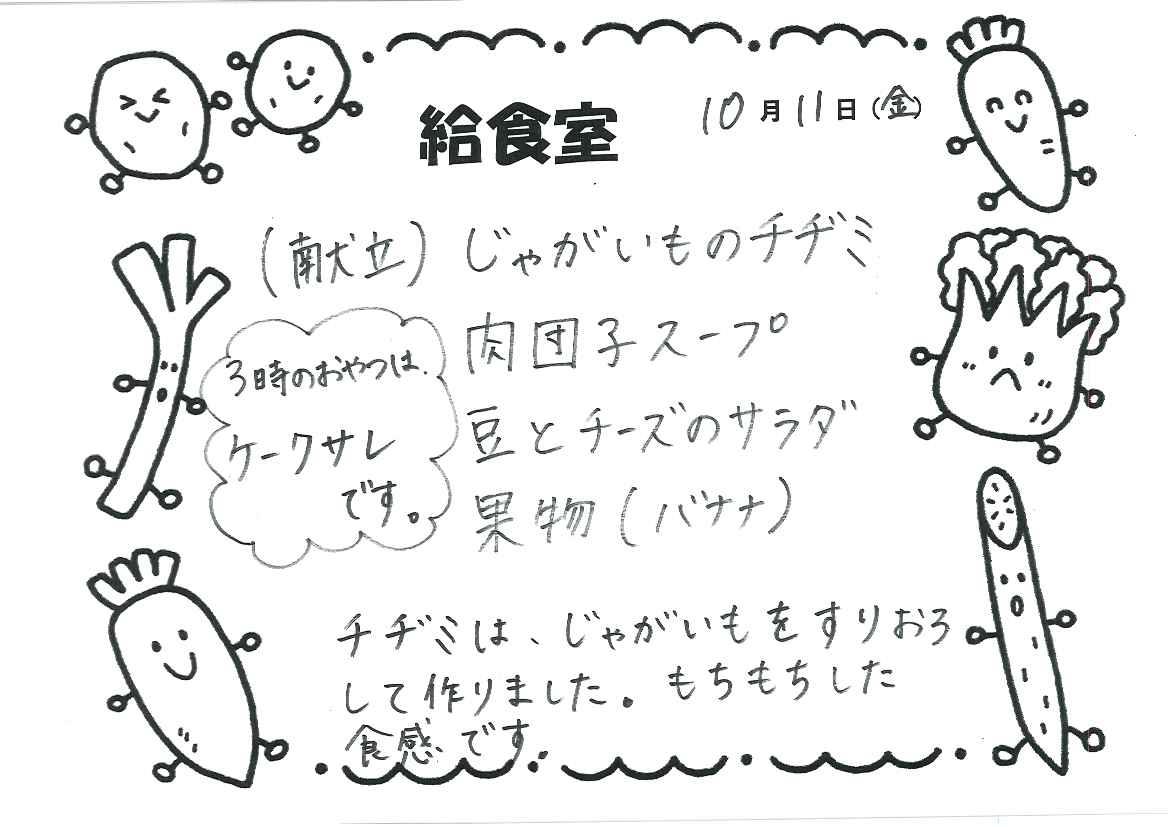 給食室
10月11日(金)
(献立)じゃがいものチヂミ
肉団子スープ
豆とチーズのサラダ
果物(バナナ)
3時のおやつは、
ケークサレ
です。
チヂミは、じゃがいもをすりおろ
して作りました。もちもちした
食感です。